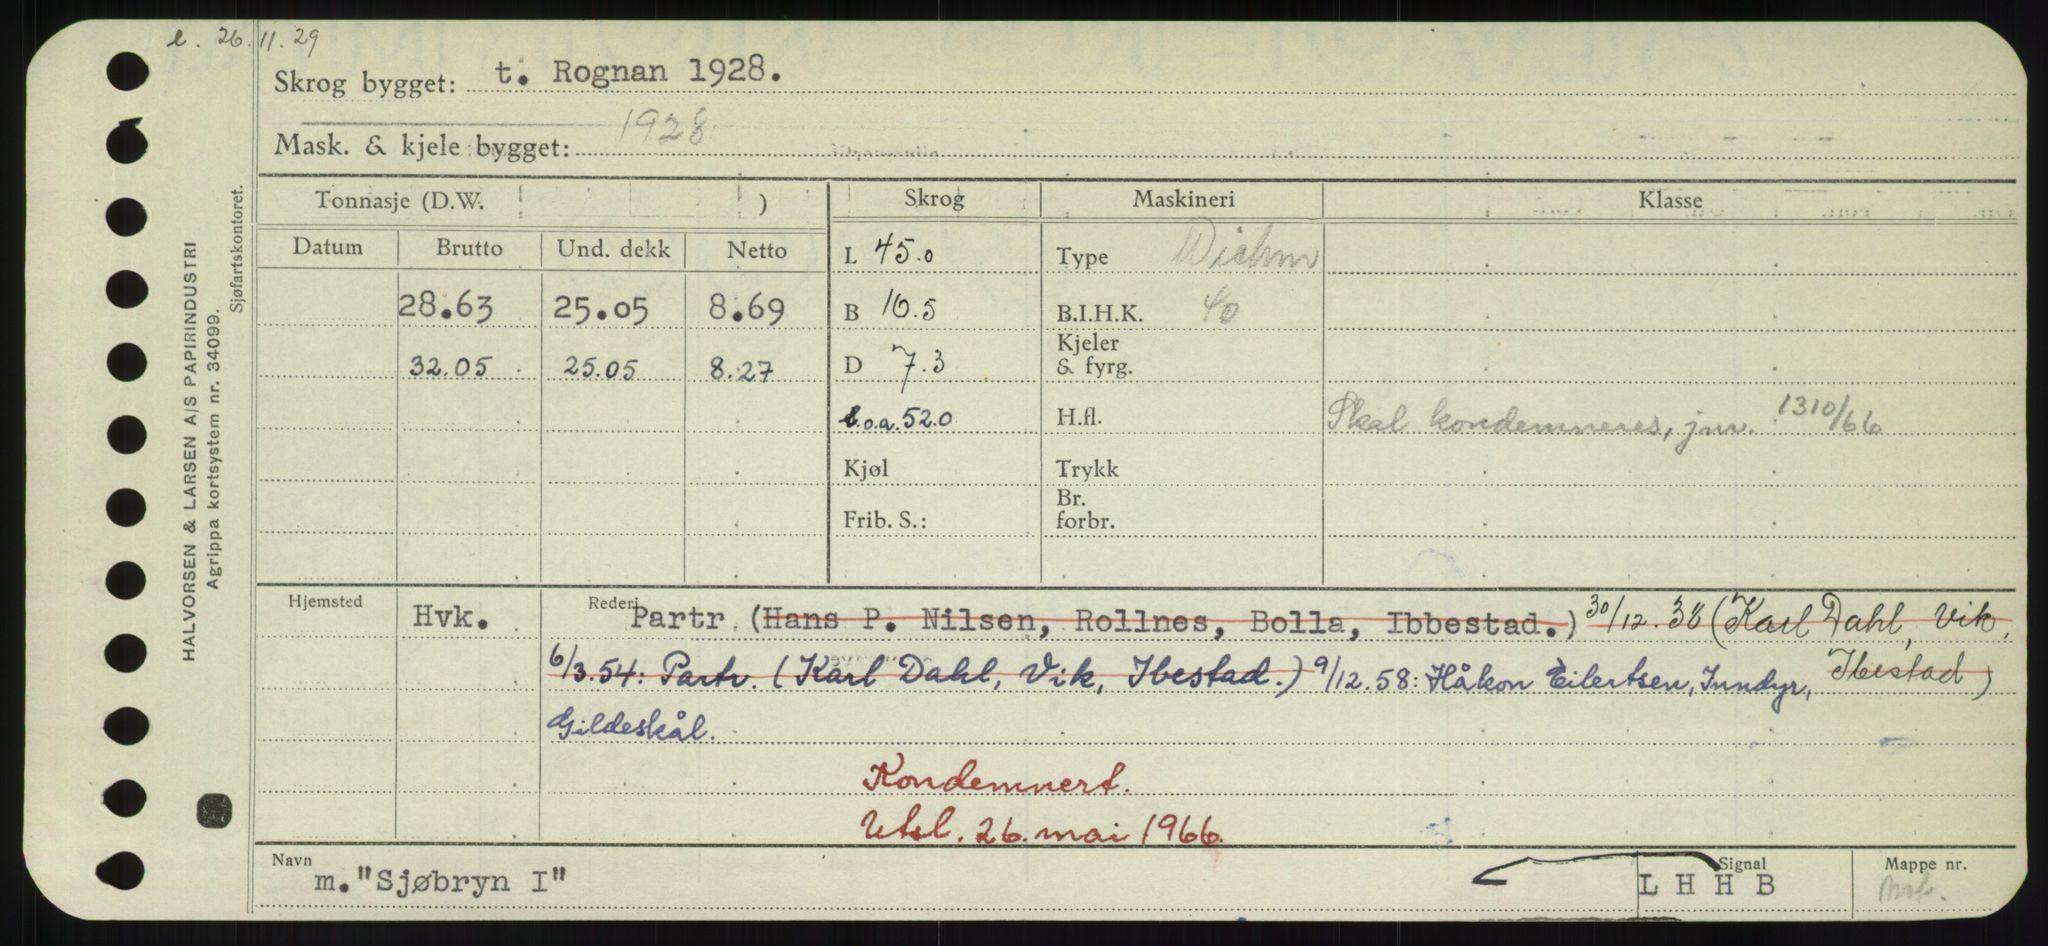 e. 26.11.29
Skrog bygget: t. Rognan 1928.
Mask. & kjele bygget: 1928
Tonnasje (D.W. ) Skrog Maskineri Klasse
Datum Brutto Und. dekk Netto L 45.0 Type
28.63 25.05 8.69 B 16.5 B.I.H.K. 40
32.05 25.05 8.27 D 7.3 Kjeler & fyrg.
l.o.a. 52.0 H.fl. Skal kondemneres, jnr. 1310/66
Kjøl Trykk
Frib. S.: Br. forbr.
Hjemsted Hvk. Rederi Partr (Hans P. Nilsen, Rollnes, Bolla, Ibbestad.) 30/12.38 (Karl Dahl, Vik, Ibestad)
6/3.54: Partr. (Karl Dahl, Vik, Ibestad.) 9/12.58: Håkon Eilertsen, Inndyr,
Gildeskål.
Kondemnert.
Utsl. 26. mai 1966.
Navn Signal Mappe nr.
m. "Sjøbryn I" L H H B
HALVORSEN & LARSEN A/S PAPIRINDUSTRI
Agrippa kortsystem nr. 34099.
Sjøfartskontoret.